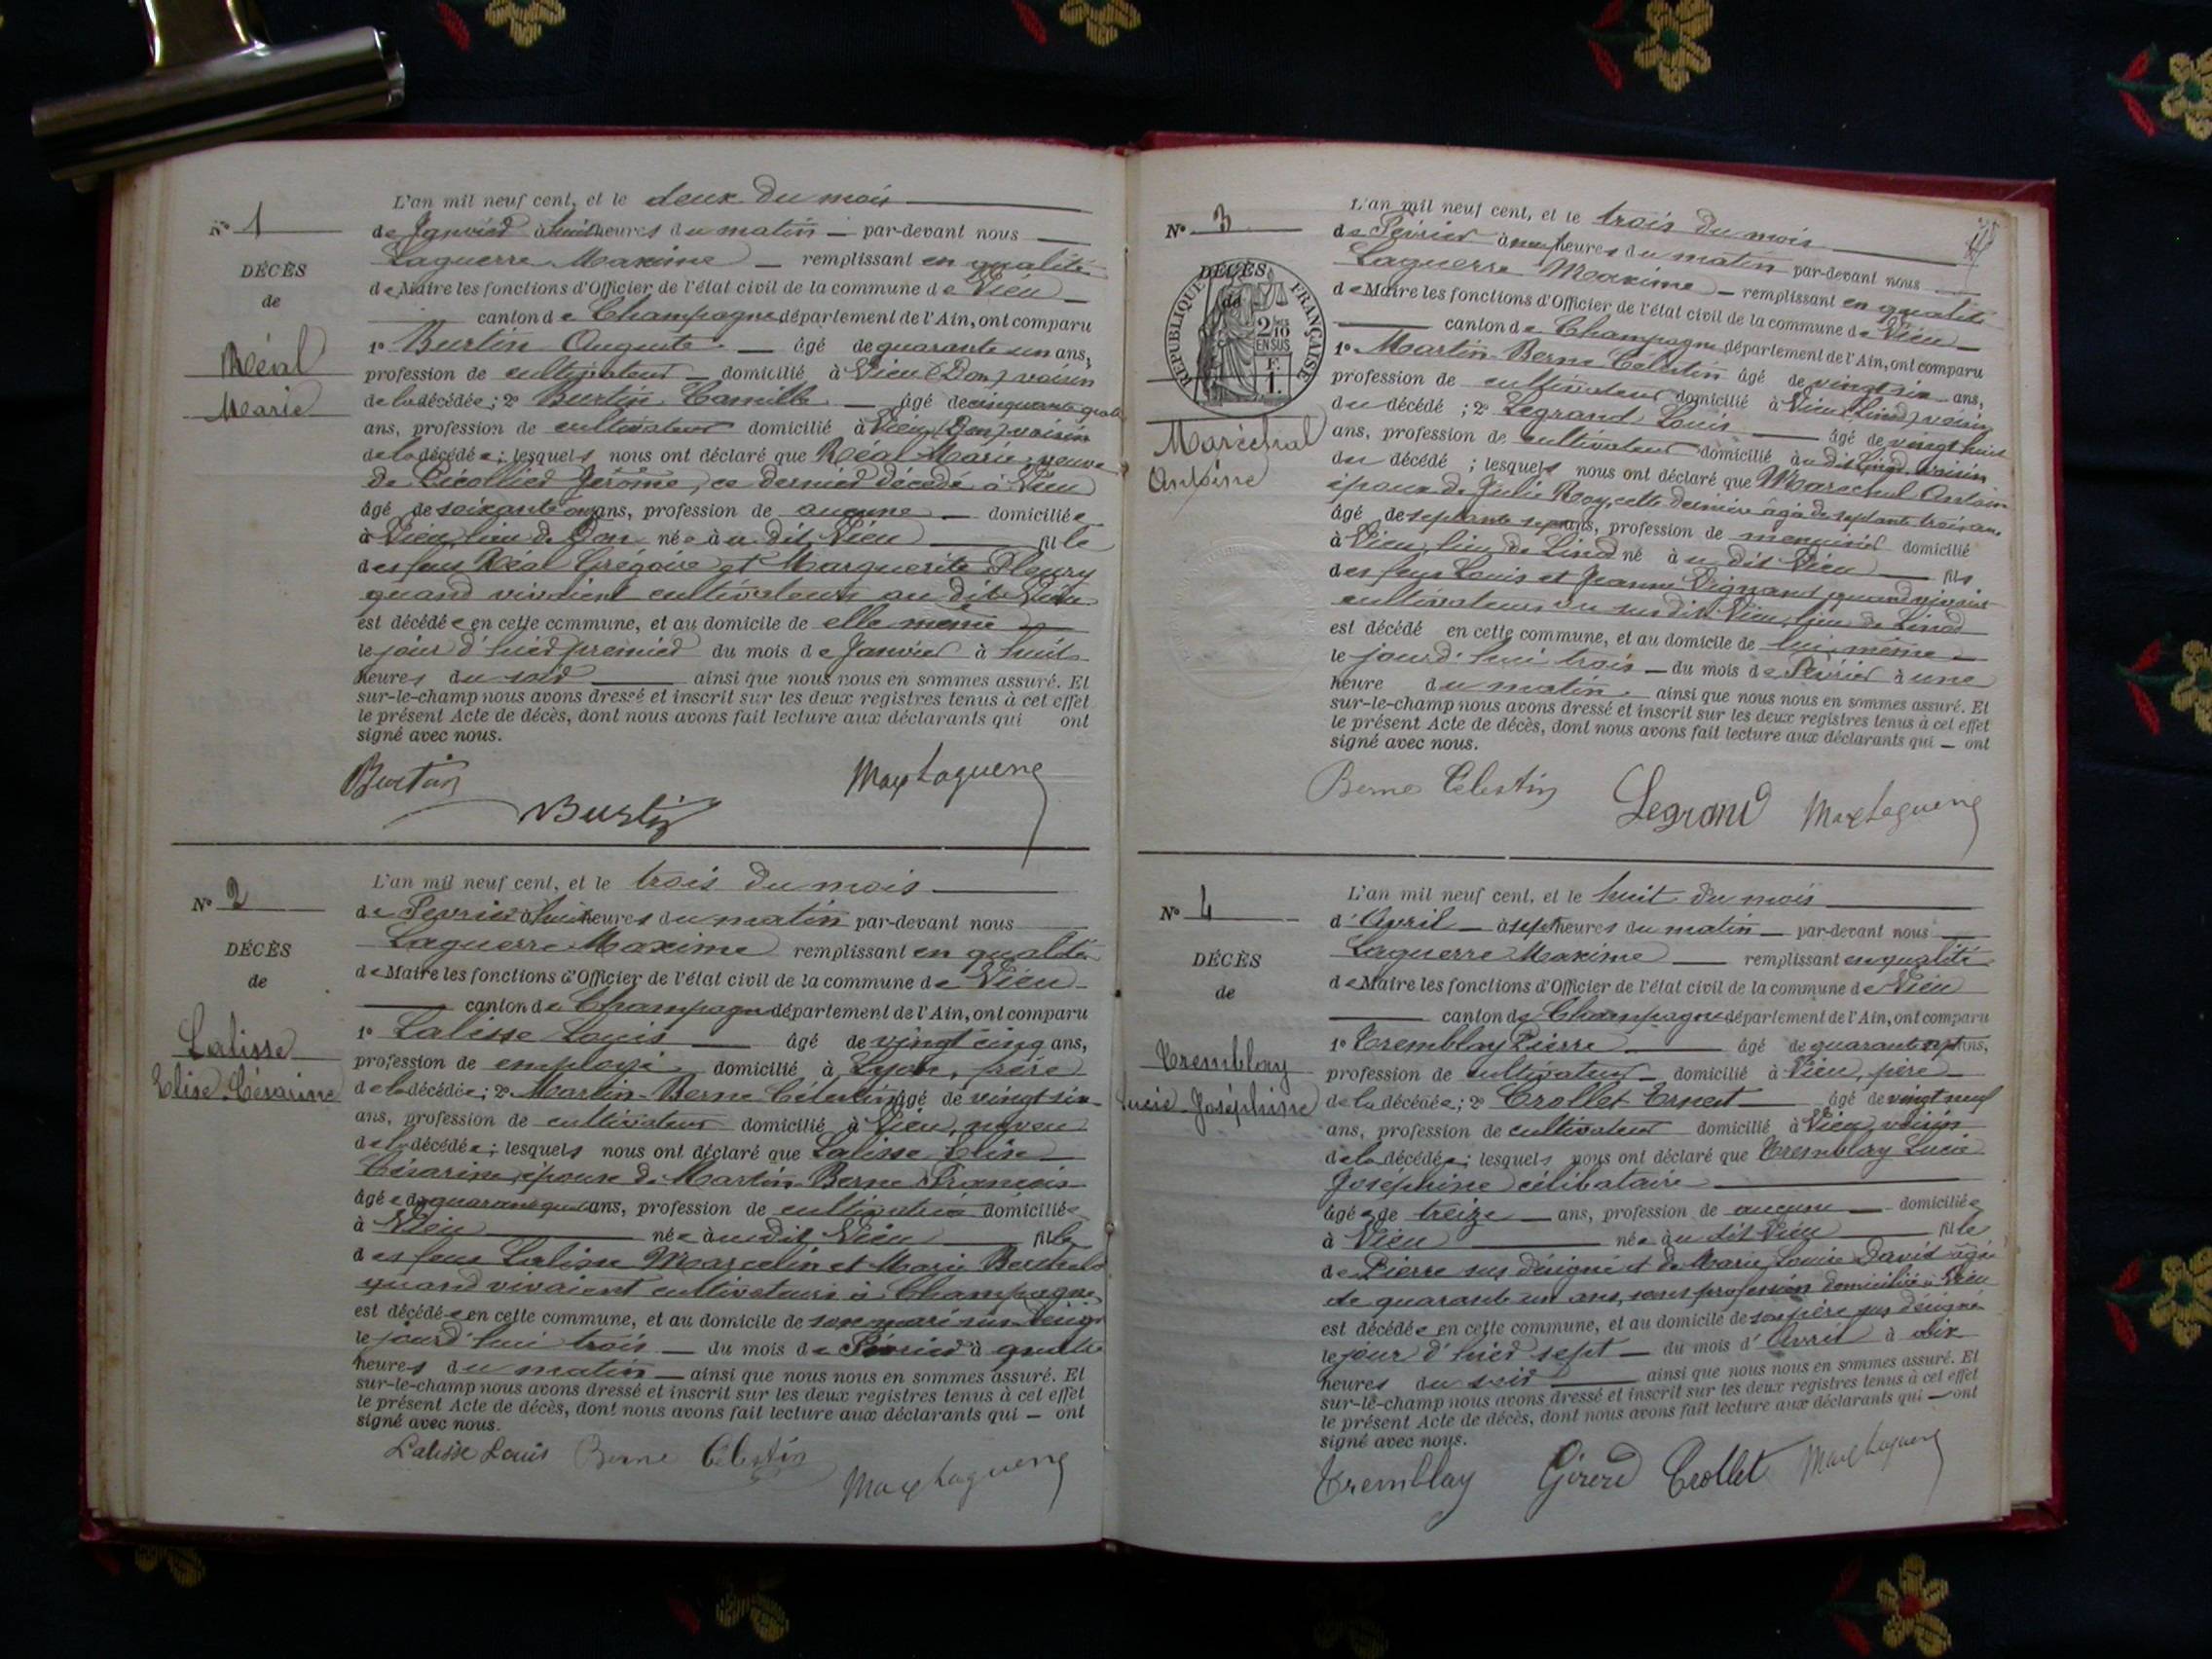 N° 1
DÉCÈS
de
Réal
Marie
L'an mil neuf cent, et le deux du mois
de Janvier à huit heures du matin par-devant nous
Laguerre Maxime remplissant en qualité
de Maire les fonctions d'Officier de l'état civil de la commune de Vieu
canton de Champagne département de l'Ain, ont comparu
1° Burtin Auguste âgé de quarante un ans,
profession de cultivateur domicilié à Vieu (Don) voisin
de la décédée; 2° Burtin Camille âgé de cinquante quatre
ans, profession de cultivateur domicilié à Vieu (Don) voisin
de la décédée; lesquels nous ont déclaré que Réal Marie, veuve
de Jérôme, ce dernier décédé à Vieu
âgée de soixante onze ans, profession de aucune domiciliée
à Vieu, lieu de Don née à au dit Vieu fille
des feus Réal Grégoire et Marguerite Fleury
quand vivaient cultivateurs au dit Vieu
est décédée en cette commune, et au domicile de elle même
le jour d'hier premier du mois de Janvier à huit
heures du soir ainsi que nous nous en sommes assuré. Et
sur-le-champ nous avons dressé et inscrit sur les deux registres tenus à cet effet
le présent Acte de décès, dont nous avons fait lecture aux déclarants qui ont
signé avec nous.
Burtin
Burtin
Max Laguerre
N° 2
DÉCÈS
de
Lalisse
Elise Césarine
L'an mil neuf cent, et le trois du mois
de Fevrier à huit heures du matin par-devant nous
Laguerre Maxime remplissant en qualité
de Maire les fonctions d'Officier de l'état civil de la commune de Vieu
canton de Champagne département de l'Ain, ont comparu
1° Lalisse Louis âgé de vingt cinq ans,
profession de employé domicilié à Lyon, frère
de la décédée; 2° Martin-Berne Célestin âgé de vingt six
ans, profession de cultivateur domicilié à Vieu, neveu
de la décédée; lesquels nous ont déclaré que Lalisse Elise
Césarine, épouse de Martin-Berne François
âgée de quarante ans, profession de cultivatrice domiciliée
à Vieu née à au dit Vieu fille
des feus Lalisse Marcelin et Marie
quand vivaient cultivateurs à Champagne
est décédée en cette commune, et au domicile de son mari sus désigné
le jourd'hui trois du mois de Février à quatre
heures du matin ainsi que nous nous en sommes assuré. Et
sur-le-champ nous avons dressé et inscrit sur les deux registres tenus à cet effet
le présent Acte de décès, dont nous avons fait lecture aux déclarants qui ont
signé avec nous.
Lalisse Louis Berne Célestin
Max Laguerre
N° 3
DÉCÈS
de
RÉPUBLIQUE FRANÇAISE
2/10 EN SUS
F. 1.
Maréchal
Antoine
L'an mil neuf cent, et le trois du mois
de Février à neuf heures du matin par-devant nous
Laguerre Maxime remplissant en qualité
de Maire les fonctions d'Officier de l'état civil de la commune de Vieu
canton de Champagne département de l'Ain, ont comparu
1° Martin-Berne Célestin âgé de vingt six ans,
profession de cultivateur domicilié à Vieu (Linod) voisin
du décédé; 2° Legrand Louis âgé de vingt huit
ans, profession de cultivateur domicilié à au dit Linod, voisin
du décédé; lesquels nous ont déclaré que Maréchal Antoine
époux de Julie Roy, cette dernière âgée de septante trois ans,
âgé de septante sept ans, profession de menuisier domicilié
à Vieu, lieu de Linod né à au dit Vieu fils
des feus Louis et Jeanne quand vivaient
cultivateurs au sus dit Vieu, lieu de Linod
est décédé en cette commune, et au domicile de lui-même
le jourd'hui trois du mois de Février à une
heure du matin ainsi que nous nous en sommes assuré. Et
sur-le-champ nous avons dressé et inscrit sur les deux registres tenus à cet effet
le présent Acte de décès, dont nous avons fait lecture aux déclarants qui ont
signé avec nous.
Berne Célestin Legrand Max Laguerre
N° 4
DÉCÈS
de
Tremblay
Lucie Joséphine
L'an mil neuf cent, et le huit du mois
d'Avril à sept heures du matin par-devant nous
Laguerre Maxime remplissant en qualité
de Maire les fonctions d'Officier de l'état civil de la commune de Vieu
canton de Champagne département de l'Ain, ont comparu
1° Tremblay Pierre âgé de quarante sept ans,
profession de cultivateur domicilié à Vieu, père
de la décédée; 2° Trollet Ernest âgé de vingt neuf
ans, profession de cultivateur domicilié à Vieu, voisin
de la décédée; lesquels nous ont déclaré que Tremblay Lucie
Joséphine célibataire
âgée de treize ans, profession de aucune domiciliée
à Vieu née à au dit Vieu fille
de Pierre sus désigné et de Marie Louise David âgée
de quarante un ans, sans profession domiciliée à Vieu
est décédée en cette commune, et au domicile de son père sus désigné
le jour d'hier sept du mois d'Avril à dix
heures du soir ainsi que nous nous en sommes assuré. Et
sur-le-champ nous avons dressé et inscrit sur les deux registres tenus à cet effet
le présent Acte de décès, dont nous avons fait lecture aux déclarants qui ont
signé avec nous.
Tremblay Trollet Max Laguerre